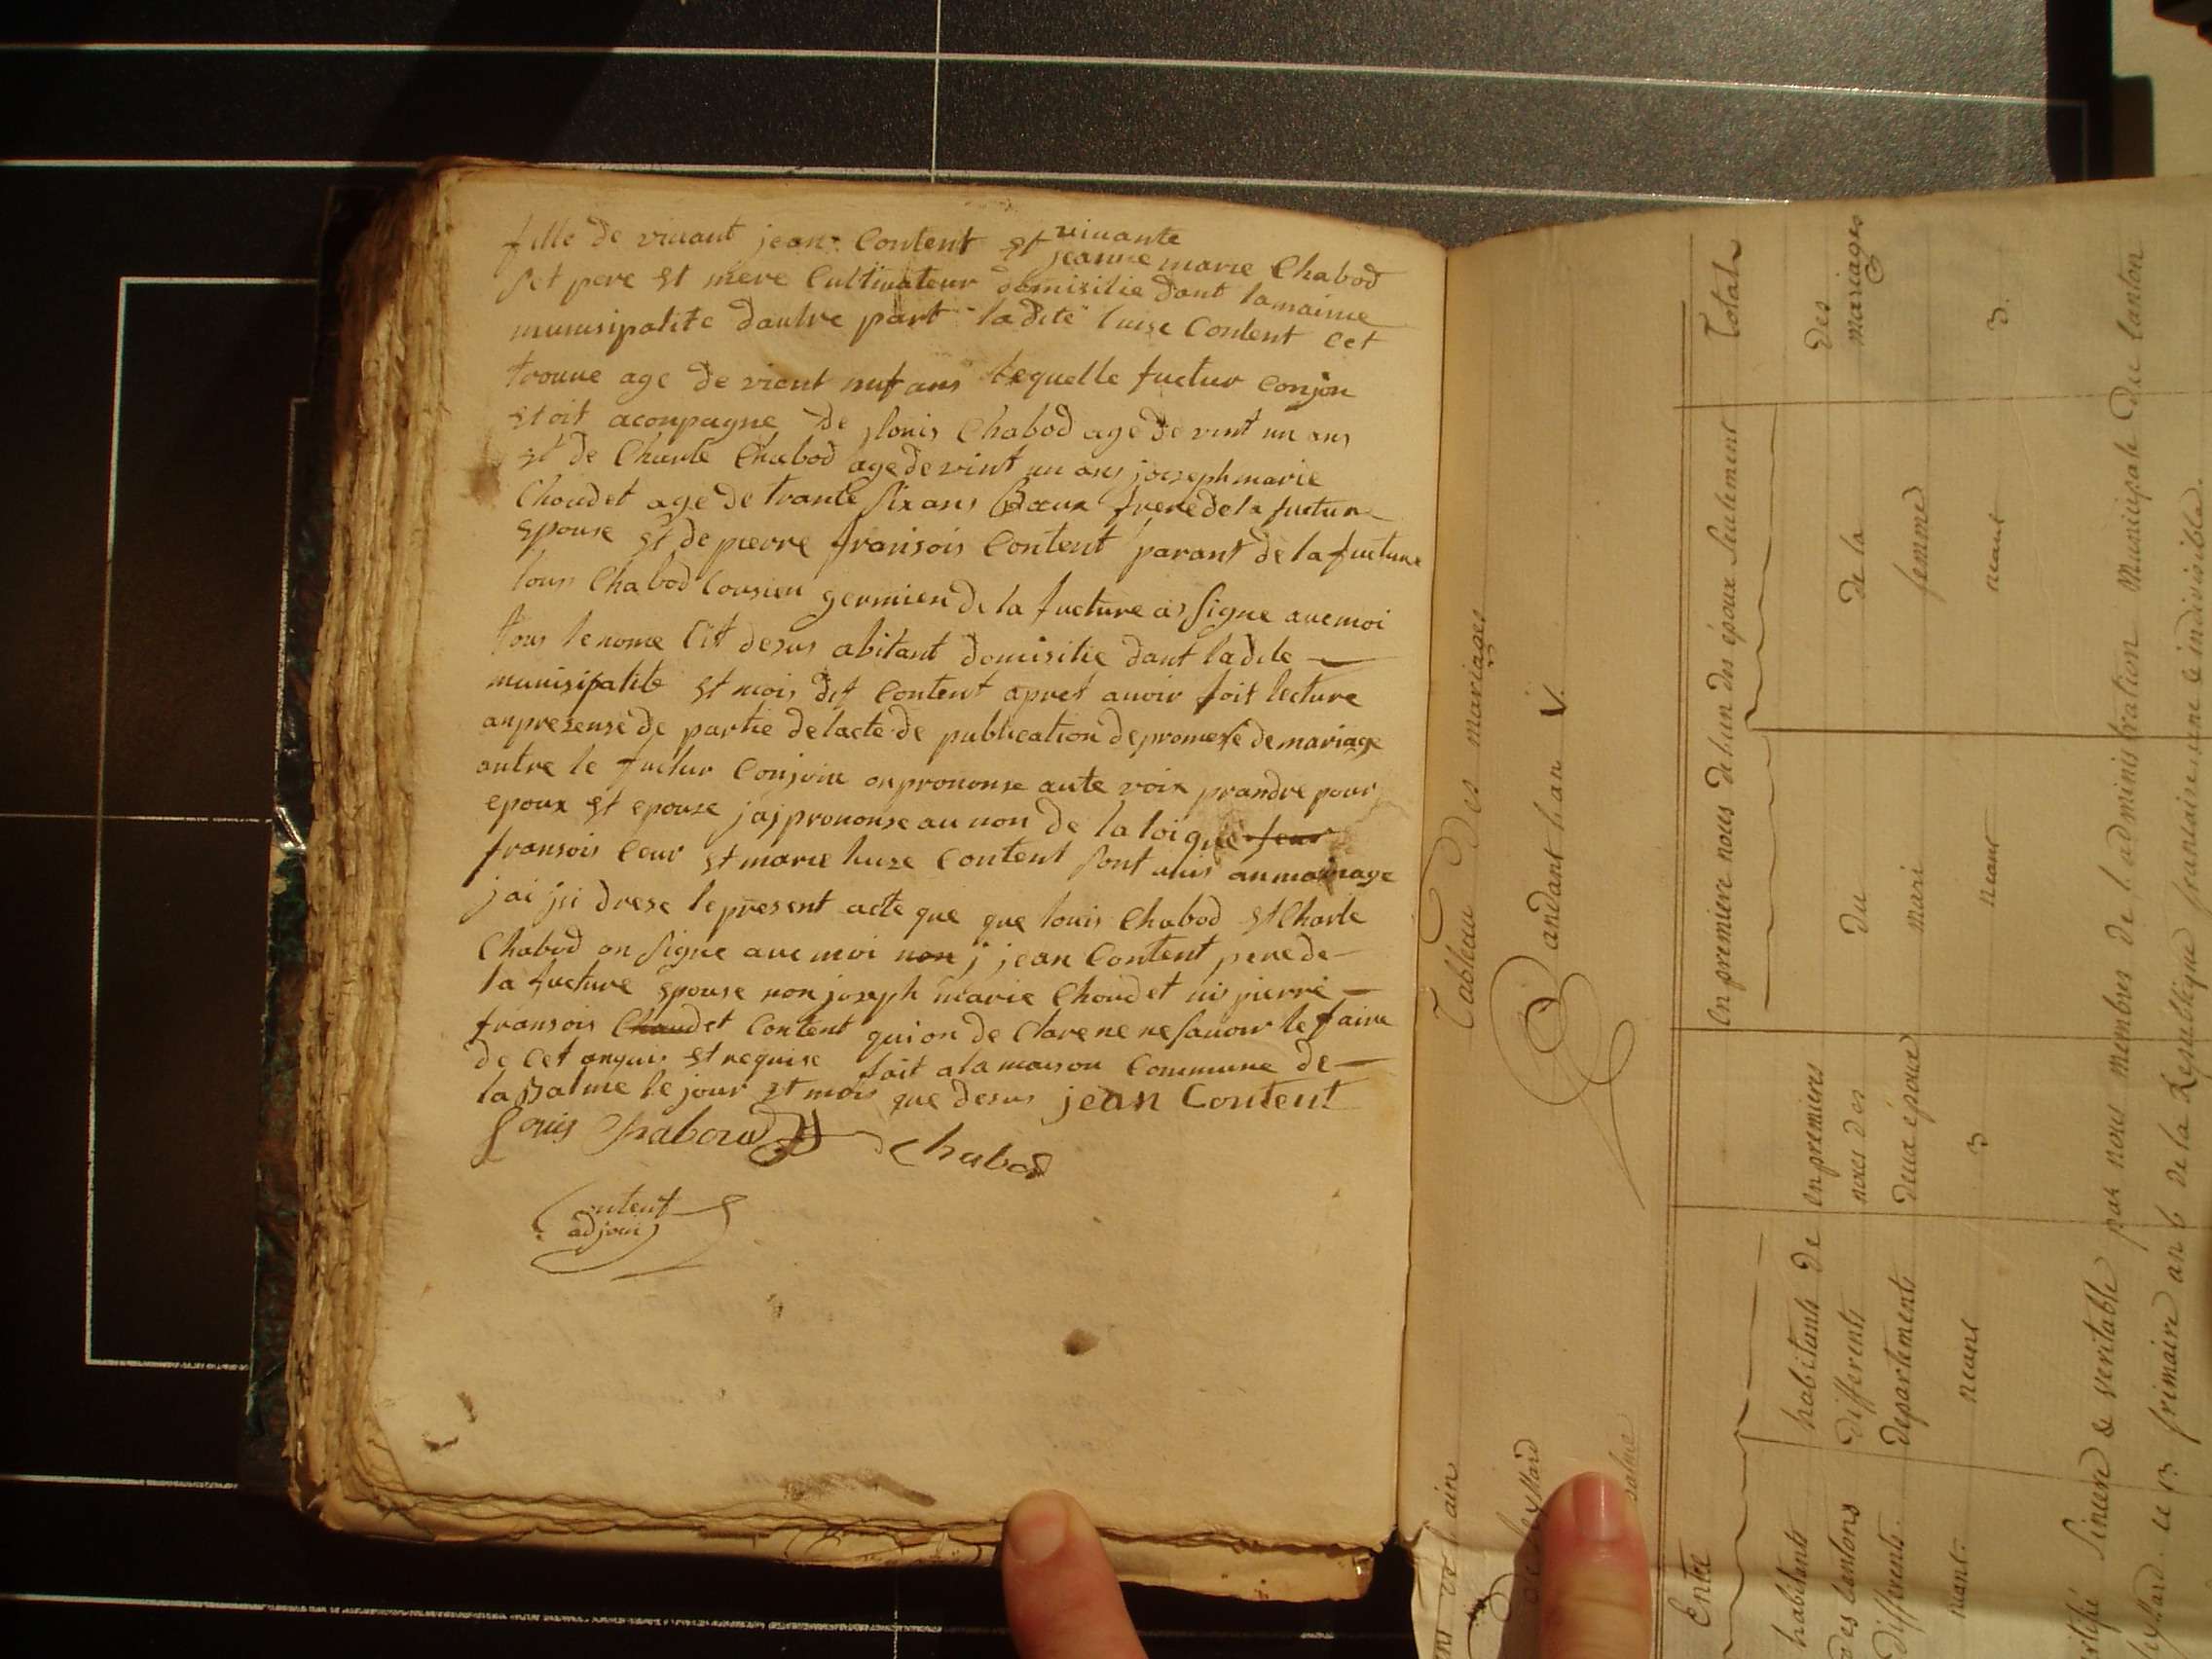 fille de vivant jean Content et vivante jeanne marie Chabod
set pere et mere Cultivateur domisilie dant lamaime
munisipalite daultre part ladite luise Content Cet
trouve age de vient nuf ans lequelle fuctur Conjon
etoit aconpagne de louis Chabod age de vint un ans
et de Charle Chabod age de vint un ans joseph marie
Choudet age de trante six ans frere de la fucture
epouse et de pierre fransois Content parant de la fucture
louis Chabod Cousien germien de la fucture as signe avemoi
tous lenome Cit desus abitant domisilie dant ladite
munisipalite et mois dit Content apret avoir foit lecture
anpresense de partie de lacte de publication de promese de mariage
antre le fuctur Conjoin onprononse aute voix prandre pour
epoux et epouse jaj prononse au non de la loi que feur
fransois Ceur et marie luize Content sont unis anmariage
jai jci drese lepresent acte que que louis Chabod et Charle
Chabod on signe ave moi non j jean Content pere de
la fucture epouse non joseph marie Choudet nis pierre
fransois Chaudet Content quion de Clare ne ne savoir le faire
de Cet anquis et requise fait a la maison Commune de
la Balme le jour et mois que desus jean Content
Louis Chaboud Chabod
Content
adjoin
Tableau Des mariages
Pandant l'an V.
de l'ain
leyssard
balme
Entre
habitants
des Cantons
differents.
neant.
habitants de
differents
departements
neant
en premiers
noces des
deux époux
3
En premiere nous de l'un des époux seulement
du
mari
neant
de la
femme
neant
Total
des
mariages
3.
Sincere & veritable par nous membres de l'administration Municipale du Canton
leyssard ce 13 frimaire an 6 de la Republique francaise une & indivisible.